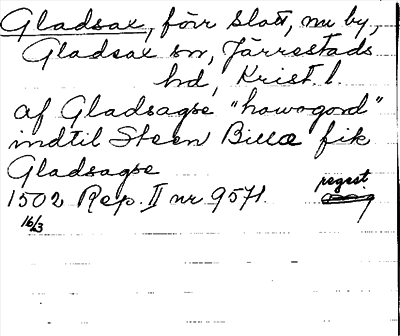 Gladsax, förr slott, nu by,
Gladsax sn, Järrestads
hd, Krist. l.
af Gladsagse "howogord"
indtil Steen Bille fik
Gladsagse
regest.
1502 Rep. II nr 9571.
16/3